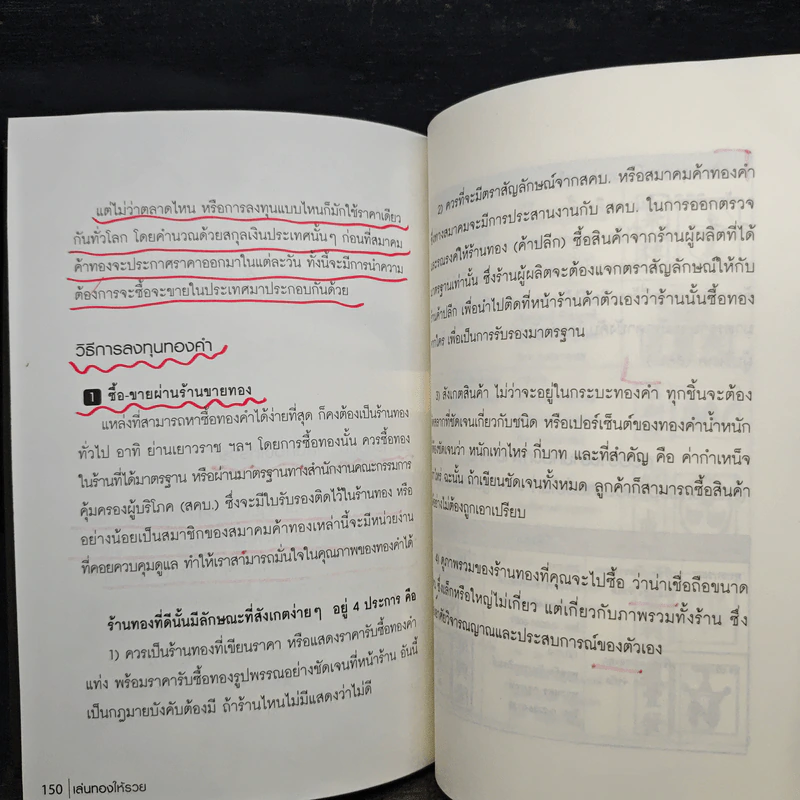 แต่ไม่ว่าตลาดไหน หรือการลงทุนแบบไหนก็มักใช้ราคาเดียว
กันทั่วโลก โดยคำนวณด้วยสกุลเงินประเทศนั้นๆ ก่อนที่สมาคม
ค้าทองจะประกาศราคาออกมาในแต่ละวัน ทั้งนี้จะมีการนำความ
ต้องการจะซื้อจะขายในประเทศมาประกอบกันด้วย
วิธีการลงทุนทองคำ
1 ซื้อ-ขายผ่านร้านขายทอง
แหล่งที่สามารถหาซื้อทองคำได้ง่ายที่สุด ก็คงต้องเป็นร้านทอง
ทั่วไป อาทิ ย่านเยาวราช ฯลฯ โดยการซื้อทองนั้น ควรซื้อทอง
ในร้านที่ได้มาตรฐาน หรือผ่านมาตรฐานทางสำนักงานคณะกรรมการ
คุ้มครองผู้บริโภค (สคบ.) ซึ่งจะมีใบรับรองติดไว้ในร้านทอง หรือ
อย่างน้อยเป็นสมาชิกของสมาคมค้าทองเหล่านี้จะมีหน่วยงาน
ที่คอยควบคุมดูแล ทำให้เราสามารถมั่นใจในคุณภาพของทองคำได้
ร้านทองที่ดีนั้นมีลักษณะที่สังเกตง่ายๆ อยู่ 4 ประการ คือ
1) ควรเป็นร้านทองที่เขียนราคา หรือแสดงราคารับซื้อทองคำ
แท่ง พร้อมราคารับซื้อทองรูปพรรณอย่างชัดเจนที่หน้าร้าน อันนี้
เป็นกฎมายบังคับต้องมี ถ้าร้านไหนไม่มีแสดงว่าไม่ดี
150 เล่นทองให้รวย
2) ควรที่จะมีตราสัญลักษณ์จากสคบ. หรือสมาคมค้าทองคำ
ทางสมาคมจะมีการประสานงานกับ สคบ. ในการออกตรวจ
ให้ร้านทอง (ค้าปลีก) ซื้อสินค้าจากร้านผู้ผลิตที่ได้
มาตรฐานเท่านั้น ซึ่งร้านผู้ผลิตจะต้องแจกตราสัญลักษณ์ให้กับ
เพื่อนำไปติดที่หน้าร้านค้าตัวเองว่าร้านนั้นซื้อทอง
เพื่อเป็นการรับรองมาตรฐาน
3) สังเกตสินค้า ไม่ว่าจะอยู่ในกระบะทองคำ ทุกชิ้นจะต้อง
ที่ชัดเจนเกี่ยวกับชนิด หรือเปอร์เซ็นต์ของทองคำน้ำหนัก
ชัดเจนว่า หนักเท่าไหร่ กี่บาท และที่สำคัญ คือ ค่ากำเหน็จ
ฉะนั้น ถ้าเขียนชัดเจนทั้งหมด ลูกค้าก็สามารถซื้อสินค้า
ไม่ต้องถูกเอาเปรียบ
4) ดูภาพรวมของร้านทองที่คุณจะไปซื้อ ว่าน่าเชื่อถือขนาด
ซึ่งเล็กหรือใหญ่ไม่เกี่ยว แต่เกี่ยวกับภาพรวมทั้งร้าน ซึ่ง
วิจารณญาณและประสบการณ์ของตัวเอง